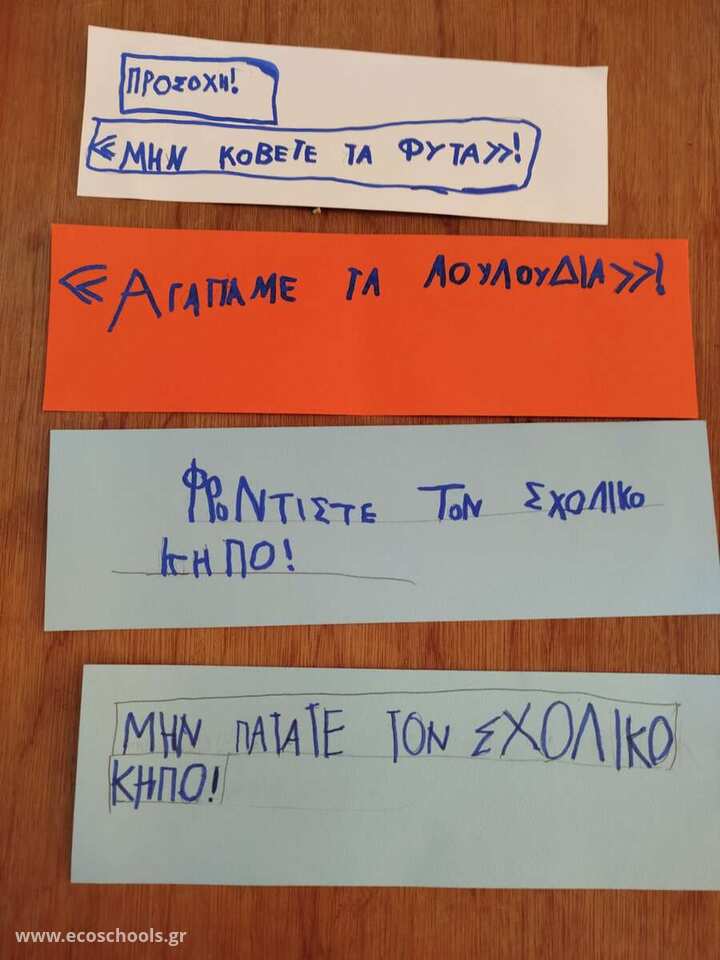 ΠΡΟΣΟΧΗ!
«ΜΗΝ ΚΟΒΕΤΕ ΤΑ ΦΥΤΑ»!
«ΑΓΑΠΑΜΕ ΤΑ ΛΟΥΛΟΥΔΙΑ»!
ΦΡΟΝΤΙΣΤΕ ΤΟΝ ΣΧΟΛΙΚΟ
ΚΗΠΟ!
ΜΗΝ ΠΑΤΑΤΕ ΤΟΝ ΣΧΟΛΙΚΟ
ΚΗΠΟ!
www.ecoschools.gr